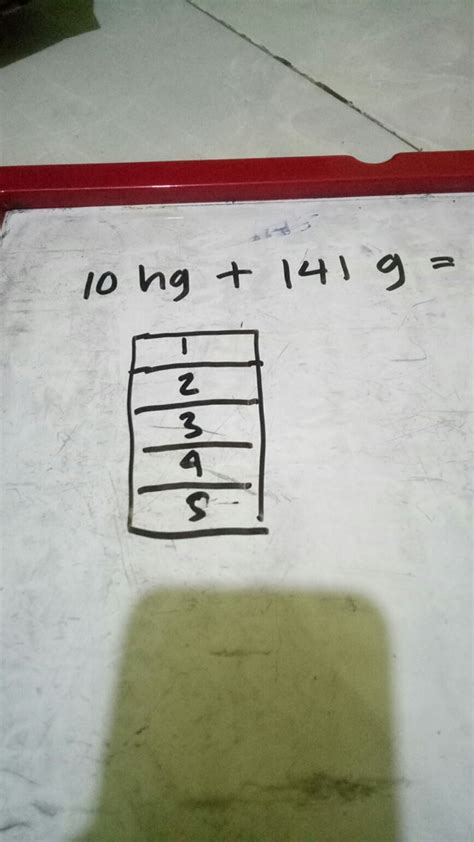 10 hg + 141 g =
1
2
3
4
5